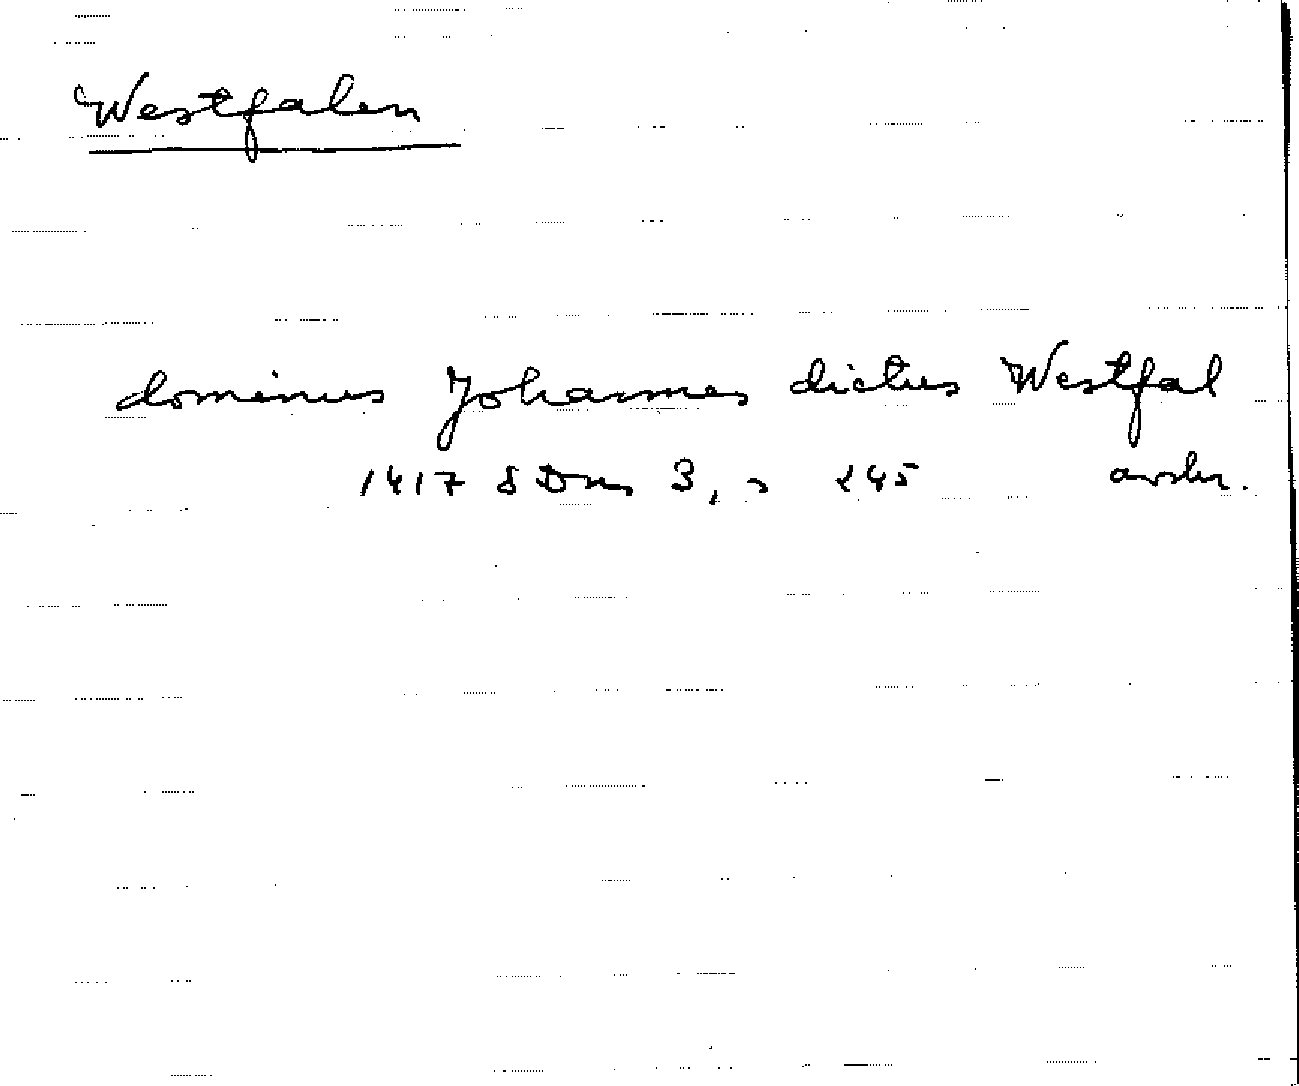 Westfalen
dominus Johannes dictus Westfal
1417 SDns 3, s 245 avskr.